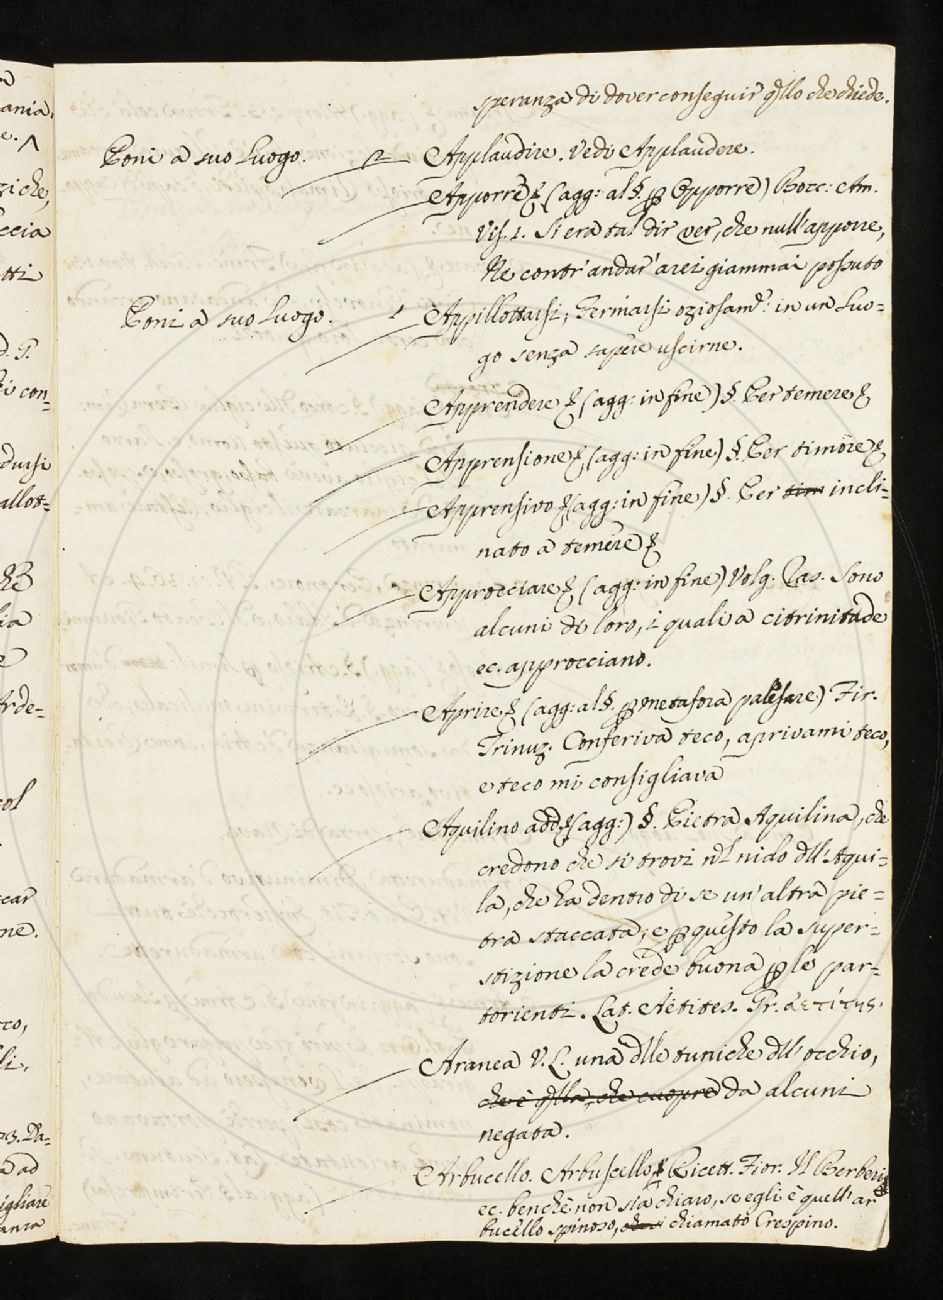 speranza di dover conseguir q̃llo che chiede.
Poni a suo Luogo. 2 Applaudire. Vedi Applaudere.
Apporre & (agg: al §. ꝑ Opporre) Bocc: Am.
Vis. 1. Si era tal dir ver, che null'apporre,
Ne contr'andar'arei giammai possuto
Poni a suo Luogo. 1 Appillottarsi, Fermarsi oziosamẽ: in un Luo=
go senza sapere uscirne.
Apprendere & (agg: in fine) §. Per temere &
Apprensione & (agg: in fine) §. Per timore &
Apprensivo & (agg: in fine) §. Per tim incli=
nato a temere &
Approcciare & (agg: in fine) Volg. Ras. Sono
alcuni di loro, i quali a citrinitade
ec. approcciano.
Aprire & (agg: al §. ꝑ metafora palesare) Fir.
Trinuz. Conferiva teco, aprivami teco,
e teco mi consigliava
Aquilino add & (agg:) §. Pietra Aquilina, che
credono che si trovi nel nido dll'Aqui=
la, che ha dentro di se un'altra pie=
tra staccata; e ꝑ questo la super=
stizione la crede buona ꝑ le par=
torienti. Lat. Aetites. Gr. ἀετίτης.
Aranea V. L. una dlle tuniche dll'occhio,
che è q̃lla, che cuopre da alcuni
negata.
Arbucello. Arbuscello & Ricett. Fior. Il Berberi
ec. benche non sia chiaro, se egli è quell'ar
bucello spinoso, chiamato Crespino.